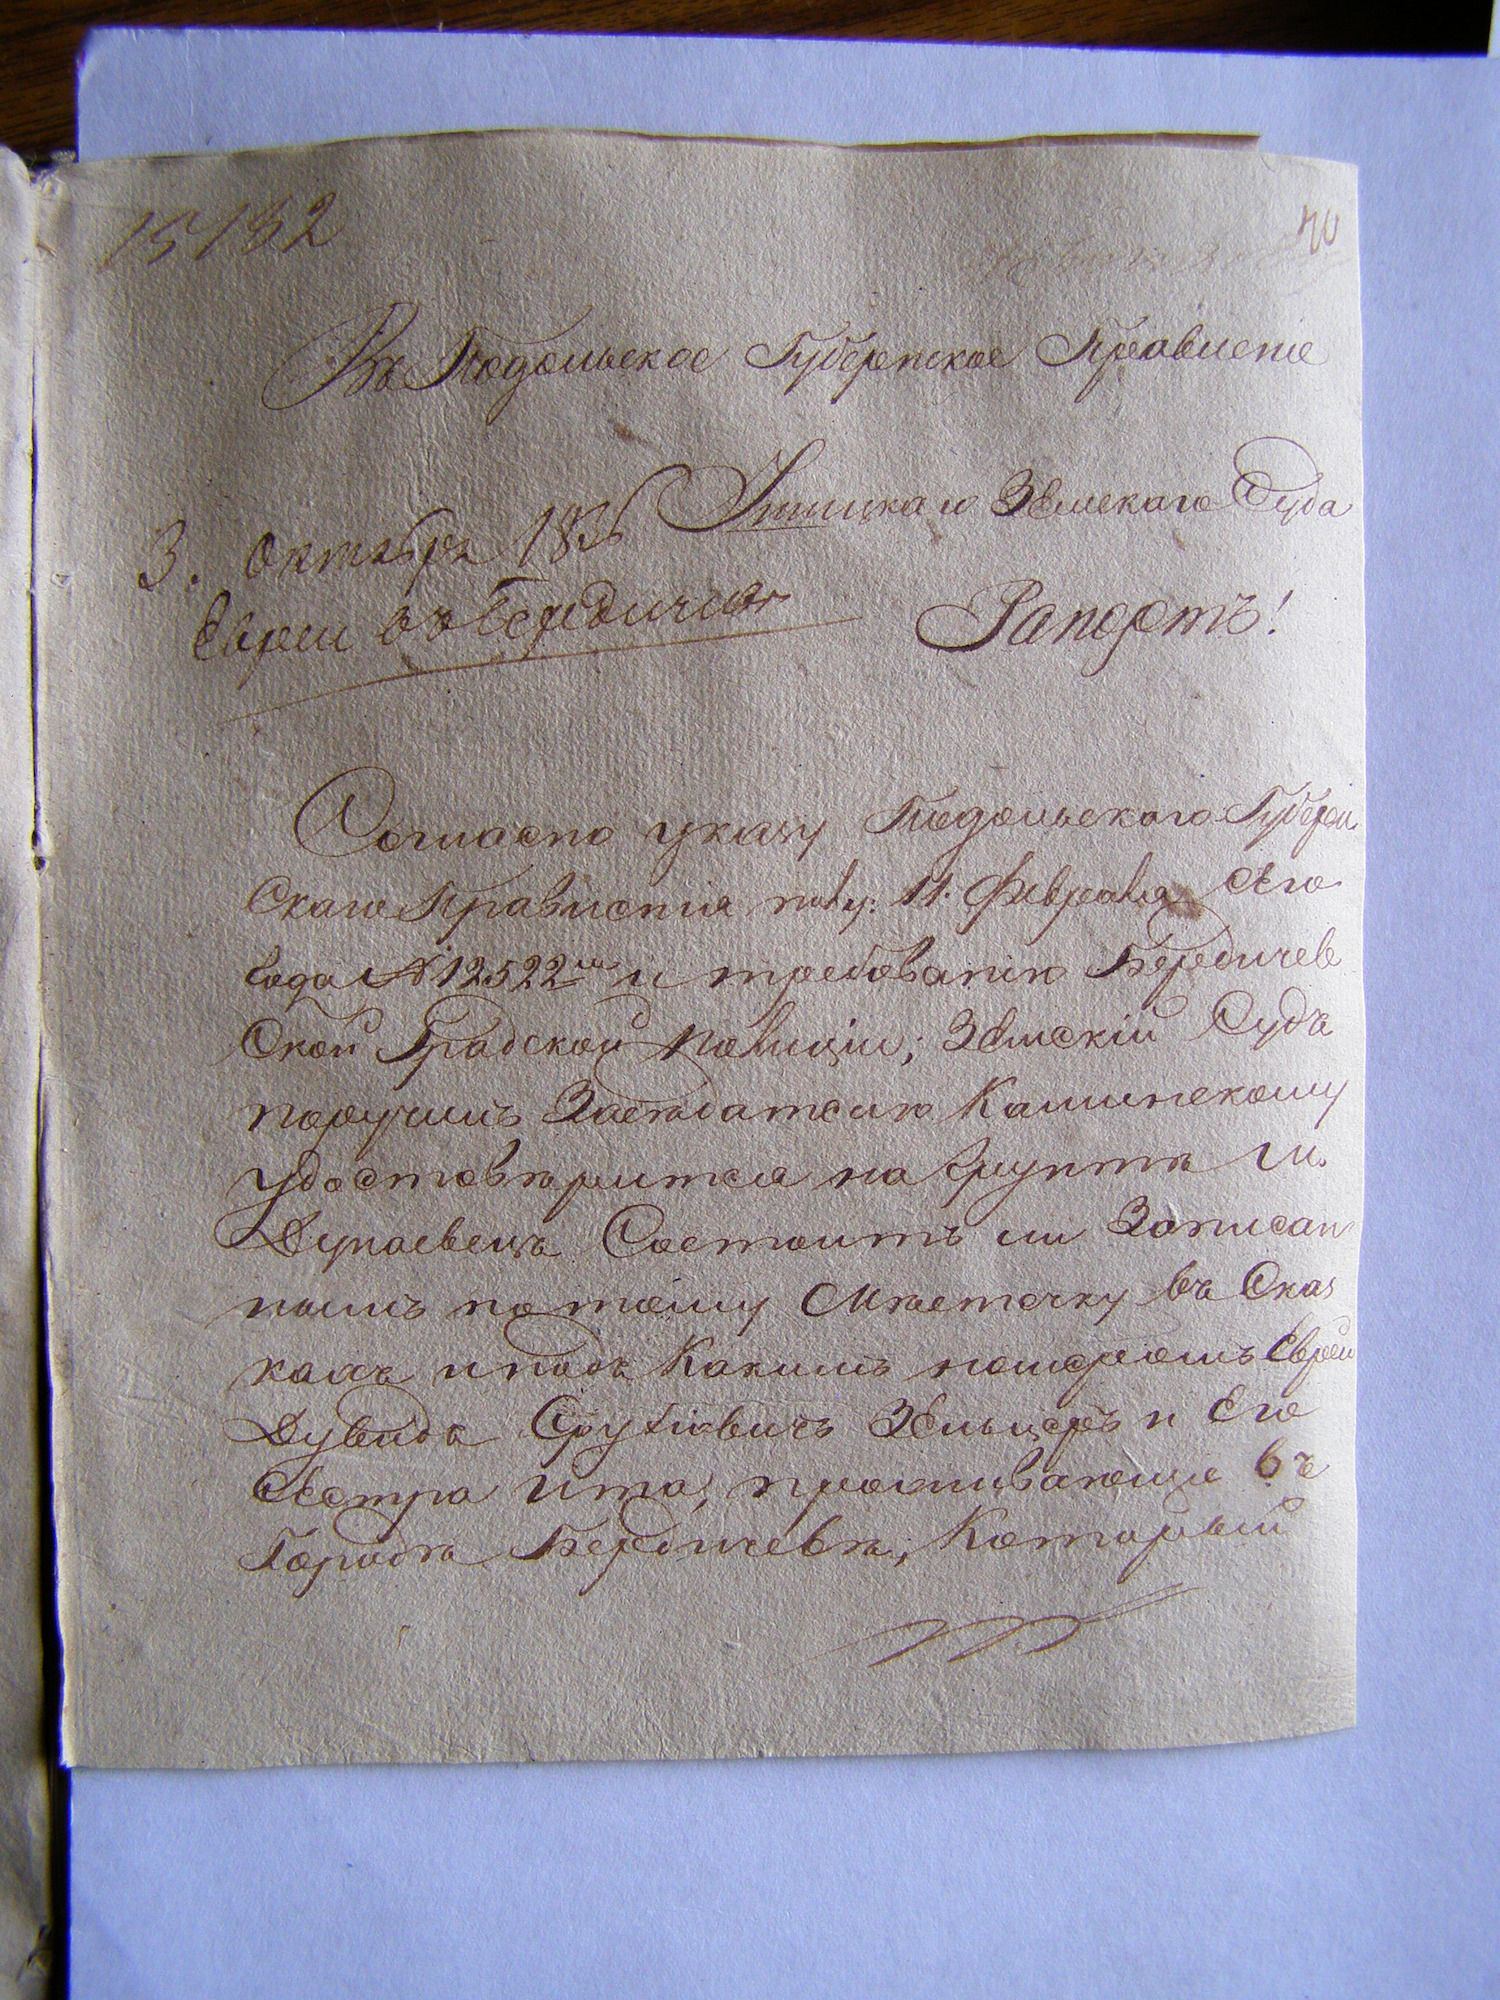 15182
40
Въ Подольское Губернское Правленіе
Ушицкаго Земскаго Суда
3. Октября 1836
Рапортъ!
Евреи въ Бердичевѣ
Согласно указу Подольскаго Губерн
скаго Правленія 11. Февраля сего
года № 12522 и требованію Бердичев
ской Градской Полиціи; Земскій Судъ
поручилъ Засѣдателю Каминскому
удостовѣрится на грунтѣ М.
Дунаевецъ Состоитъ ли Записан
нымъ по тому Мѣстечку въ Сказ
кахъ и подъ Какимъ номеромъ Еврей
Дувидъ Срулiовичъ Зельцеръ и Его
Сестра Ита, проживающіе въ
Городѣ Бердичевѣ; Который